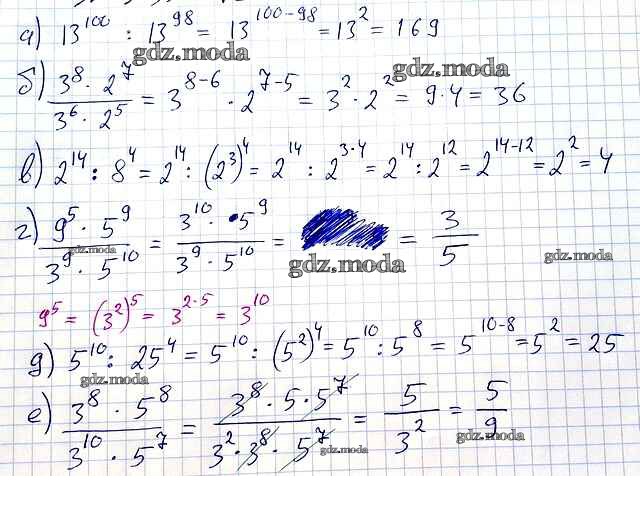 а) 13^100 : 13^98 = 13^(100-98) = 13^2 = 169
gdz.moda
gdz.moda
б) (3^8 · 2^7)/(3^6 · 2^5) = 3^(8-6) · 2^(7-5) = 3^2 · 2^2 = 9·4 = 36
в) 2^14 : 8^4 = 2^14 : (2^3)^4 = 2^14 : 2^(3·4) = 2^14 : 2^12 = 2^(14-12) = 2^2 = 4
г) (9^5 · 5^9)/(3^9 · 5^10) = (3^10 · 5^9)/(3^9 · 5^10) = = 3/5
gdz.moda
gdz.moda
gdz.moda
9^5 = (3^2)^5 = 3^(2·5) = 3^10
д) 5^10 : 25^4 = 5^10 : (5^2)^4 = 5^10 : 5^8 = 5^(10-8) = 5^2 = 25
gdz.moda
е) (3^8 · 5^8)/(3^10 · 5^7) = (3^8 · 5 · 5^7)/(3^2 · 3^8 · 5^7) = 5/3^2 = 5/9
gdz.moda
gdz.moda